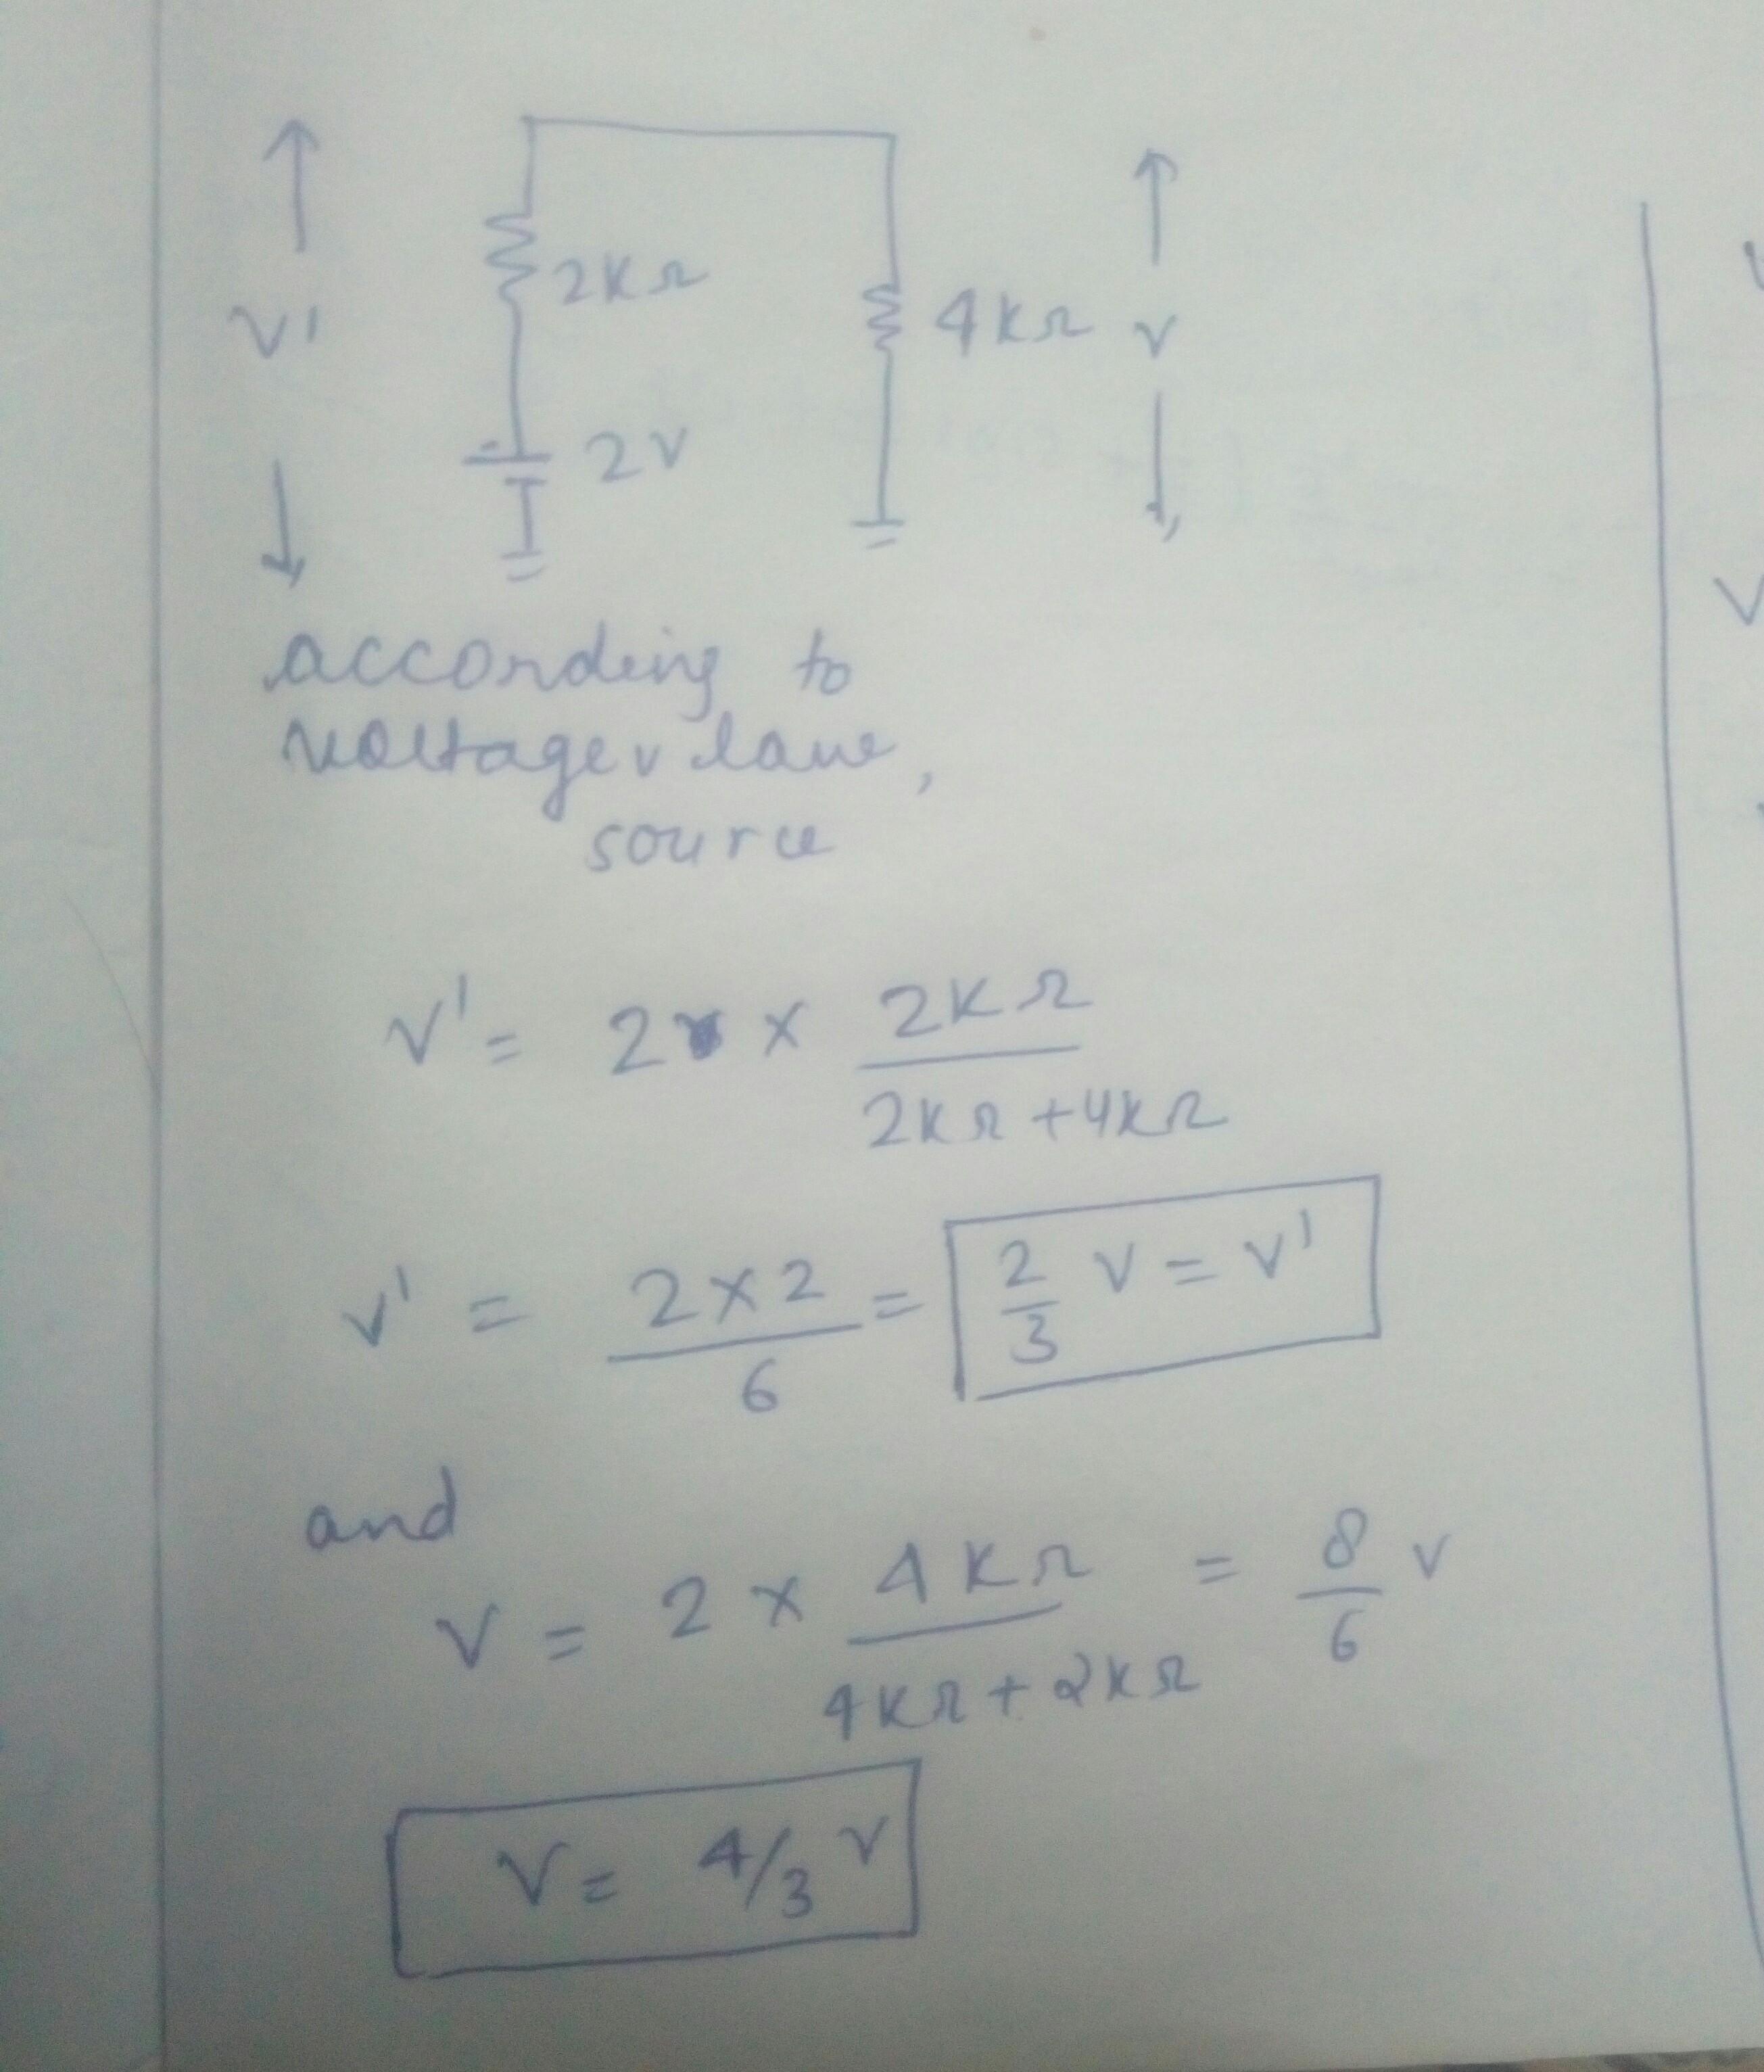 V'
2KΩ
4KΩ
V
2V
according to
voltage v law,
source
V' = 2 x 2KΩ
2KΩ + 4KΩ
V' = 2 x 2 = 2 V = V'
6 3
and
V = 2 x 4KΩ = 8 V
4KΩ + 2KΩ 6
V = 4/3 V